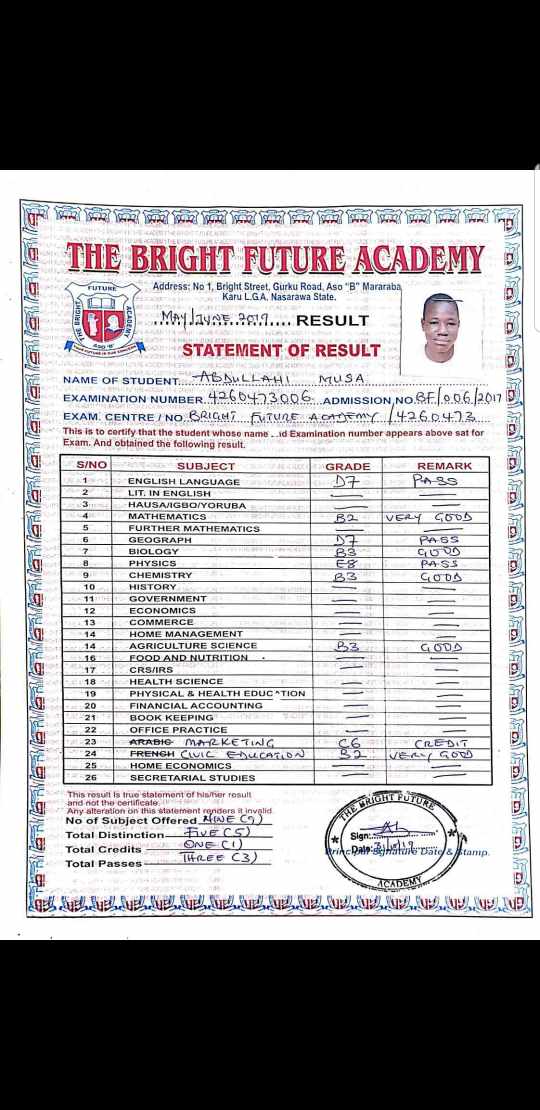 THE BRIGHT FUTURE ACADEMY
FUTURE
THE BRIGHT
ACADEMY
ASO 'B'
Address: No 1, Bright Street, Gurku Road, Aso "B" Mararaba
Karu L.G.A, Nasarawa State.
MAY/JUNE 2019 RESULT
STATEMENT OF RESULT
NAME OF STUDENT ABDULLAHI MUSA
EXAMINATION NUMBER 4260473006 ADMISSION NO BF/006/2017
EXAM. CENTRE / NO. BRIGHT FUTURE ACADEMY /4260473
This is to certify that the student whose name ..id Examination number appears above sat for
Exam. And obtained the following result.
S/NO SUBJECT GRADE REMARK
1 ENGLISH LANGUAGE D7 PASS
2 LIT. IN ENGLISH — —
3 HAUSA/IGBO/YORUBA — —
4 MATHEMATICS B2 VERY GOOD
5 FURTHER MATHEMATICS — —
6 GEOGRAPH D7 PASS
7 BIOLOGY B3 GOOD
8 PHYSICS E8 PASS
9 CHEMISTRY B3 GOOD
10 HISTORY — —
11 GOVERNMENT — —
12 ECONOMICS — —
13 COMMERCE — —
14 HOME MANAGEMENT — —
14 AGRICULTURE SCIENCE B3 GOOD
16 FOOD AND NUTRITION — —
17 CRS/IRS — —
18 HEALTH SCIENCE — —
19 PHYSICAL & HEALTH EDUC^TION — —
20 FINANCIAL ACCOUNTING — —
21 BOOK KEEPING — —
22 OFFICE PRACTICE — —
23 ARABIC MARKETING C6 CREDIT
24 FRENCH CIVIC EDUCATION B2 VERY GOOD
25 HOME ECONOMICS — —
26 SECRETARIAL STUDIES — —
This result is true statement of his/her result
and not the certificate.
Any alteration on this statement renders it invalid.
No of Subject Offered NINE (9)
Total Distinction FIVE (5)
Total Credits ONE (1)
Total Passes THREE (3)
THE BRIGHT FUTURE
Sign:
Date:
Principal Signature Date & Stamp.
ACADEMY